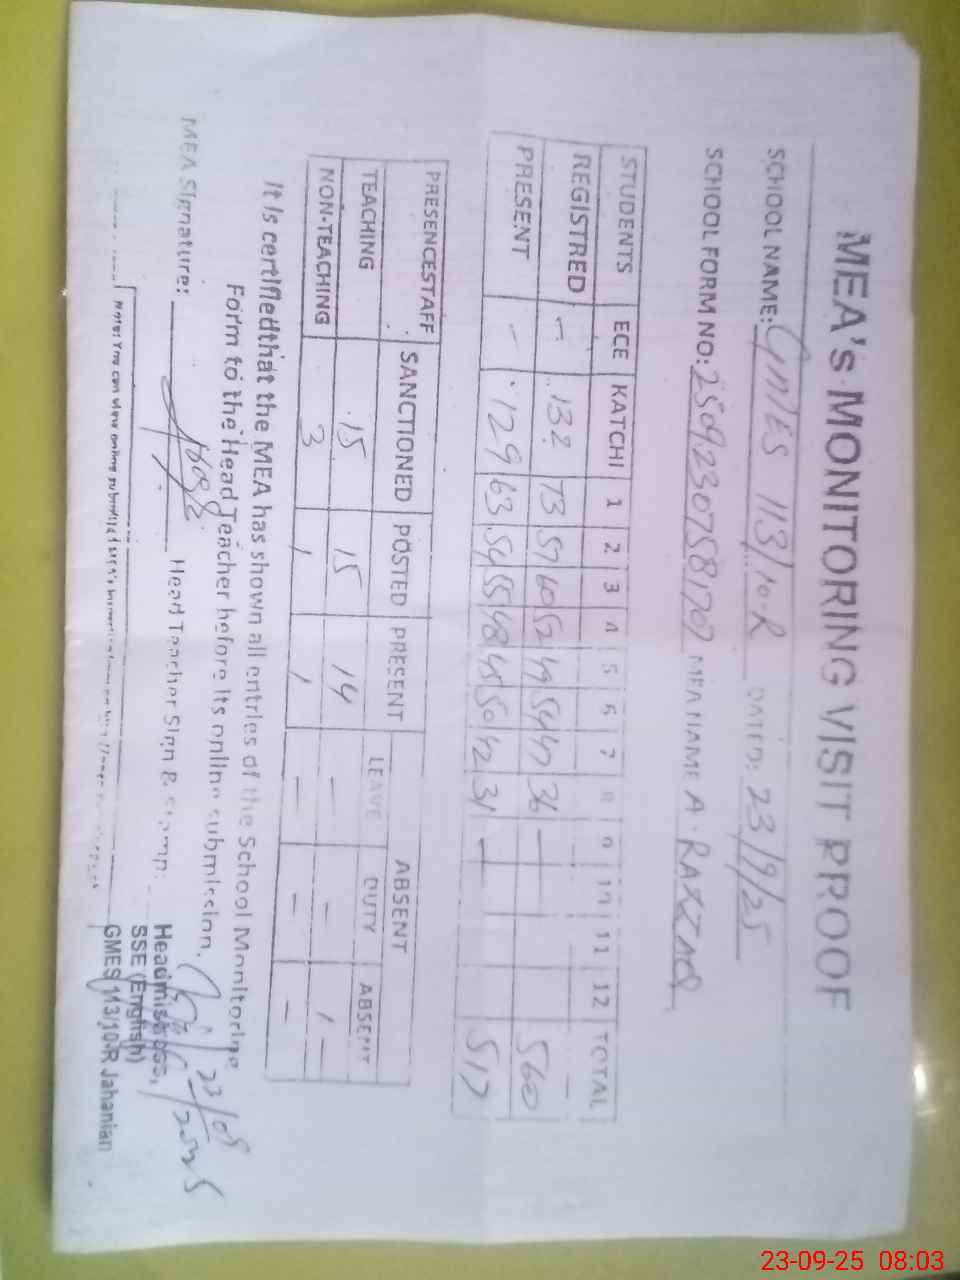 MEA's MONITORING VISIT PROOF
SCHOOL NAME: GMES 113/10-R DATED: 23/9/25
SCHOOL FORM NO: 2509230758170? MEA NAME A. RAZZAQ
STUDENTS ECE KATCHI 1 2 3 4 5 6 7 8 9 10 11 12 TOTAL
REGISTRED - 132 73 57 60 52 49 54 47 36 - 560
PRESENT - 129 63 54 55 48 45 50 42 31 - 517
PRESENCESTAFF SANCTIONED POSTED PRESENT ABSENT
LEAVE DUTY ABSENT
TEACHING 15 15 14 - - 1
NON-TEACHING 3 1 1 - - -
It is certified that the MEA has shown all entries of the School Monitoring
Form to the Head Teacher before its online submission.
MEA Signature: Head Teacher Sign & Stamp:
Headmistress,
SSE (English)
GMES 113/10-R Jahanian
Note: You can view online submitted MEA's
23-09-25 08:03